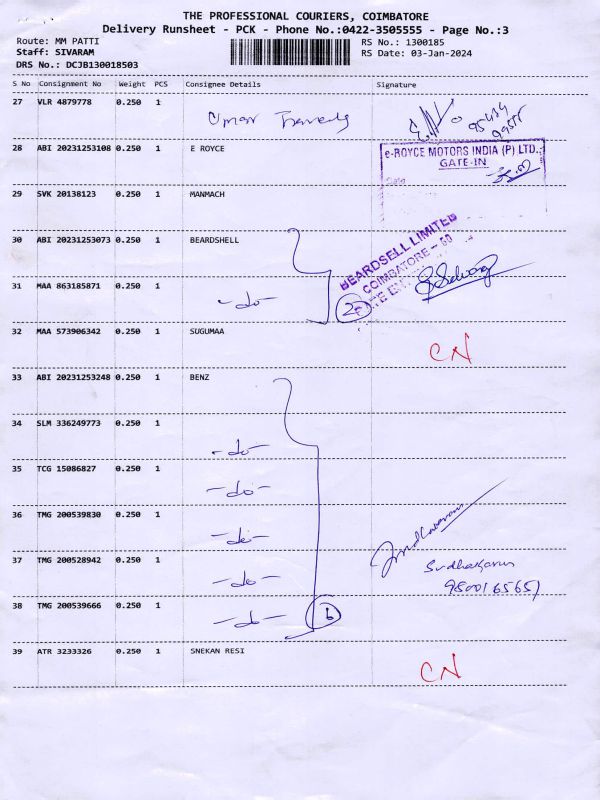 THE PROFESSIONAL COURIERS, COIMBATORE
Delivery Runsheet - PCK - Phone No.:0422-3505555 - Page No.:3
Route: MM PATTI RS No.: 1300185
Staff: SIVARAM RS Date: 03-Jan-2024
DRS No.: DCJB130018503
S No Consignment No Weight PCS Consignee Details Signature
27 VLR 4879778 0.250 1
28 ABI 20231253108 0.250 1 E ROYCE
e-ROYCE MOTORS INDIA (P) LTD.,
GATE-IN
29 SVK 20138123 0.250 1 MANMACH
30 ABI 20231253073 0.250 1 BEARDSHELL
BEARDSELL LIMITED
COIMBATORE - 50
31 MAA 863185871 0.250 1 -do- 2
32 MAA 573906342 0.250 1 SUGUMAA CN
33 ABI 20231253248 0.250 1 BENZ
34 SLM 336249773 0.250 1 -do-
35 TCG 15086827 0.250 1 -do-
36 TMG 200539830 0.250 1 -do-
37 TMG 200528942 0.250 1 -do-
Sudhakaran
38 TMG 200539666 0.250 1 -do- 6
39 ATR 3233326 0.250 1 SNEKAN RESI CN